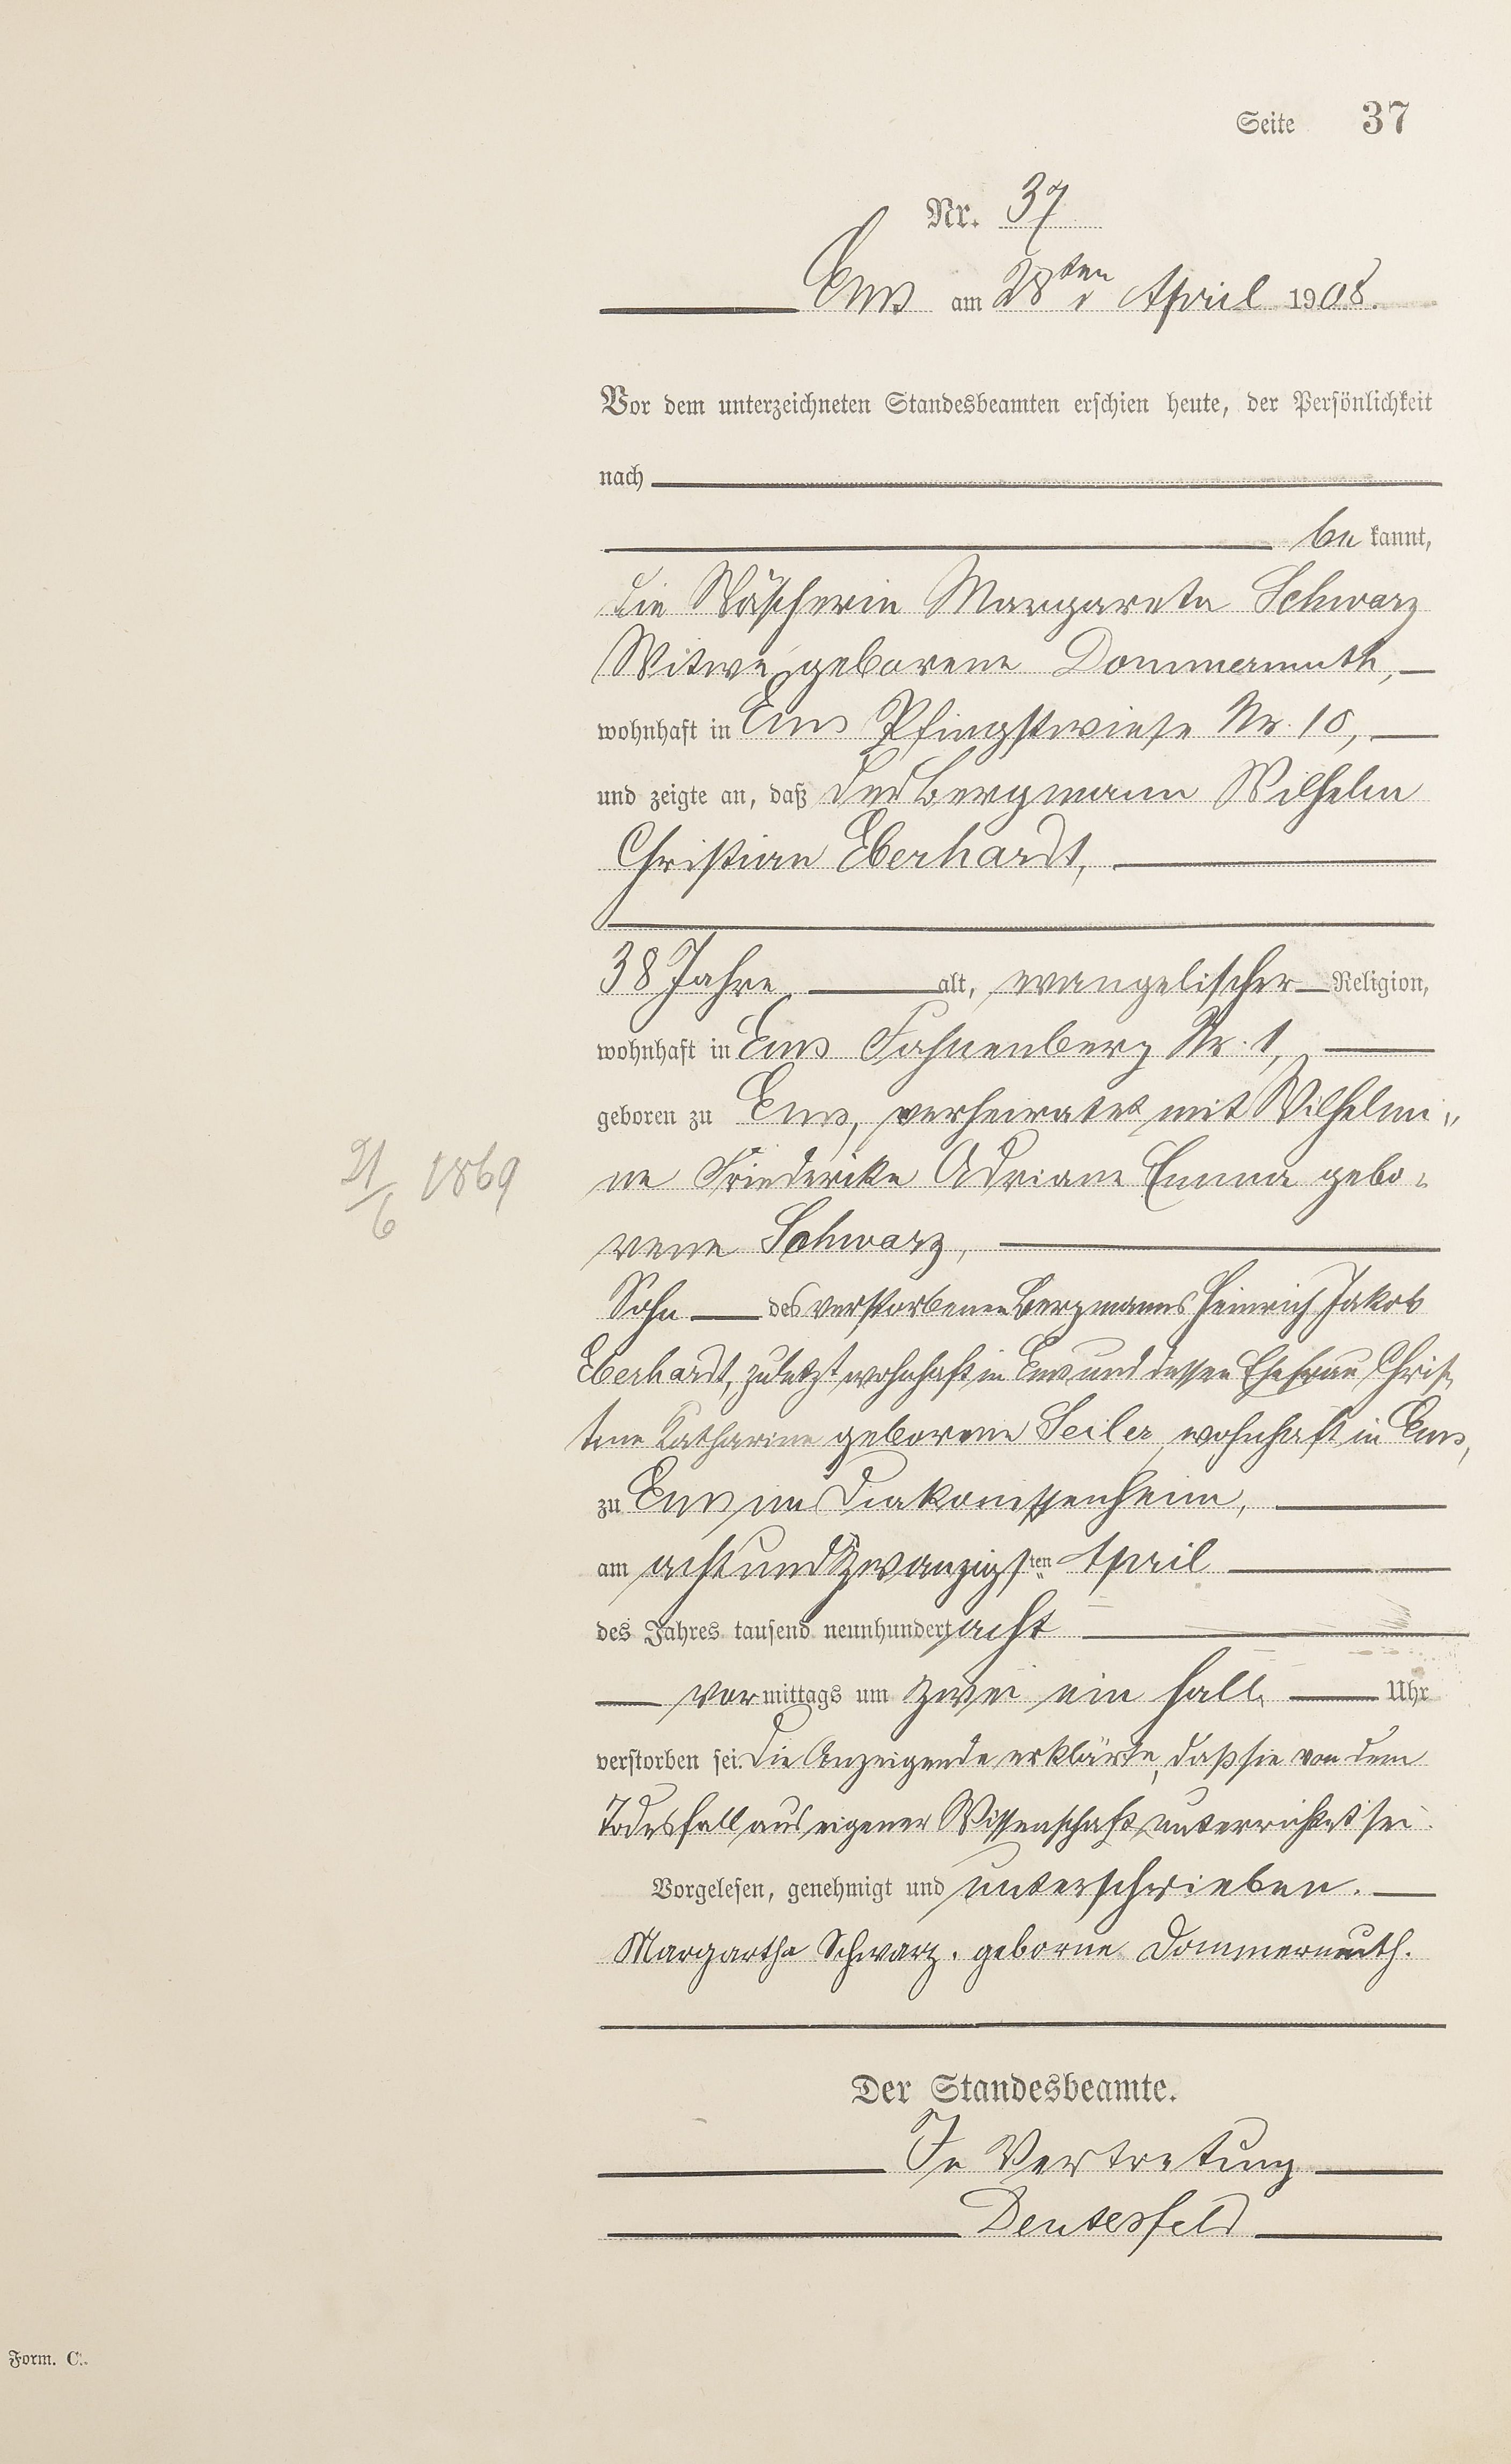 Seite 37
Nr. 37
Ems am 28ten April 1908.
Vor dem unterzeichneten Standesbeamten erschien heute, der Persönlichkeit
nach
be kannt,
die Wäscherin Margareta Schwarz
Witwe, geborene Dommermuth,
wohnhaft in Ems Pfingstwiese Nr. 10,
und zeigte an, daß der Bergmann Wilhelm
Christian Eberhardt,
38 Jahre alt, evangelischer Religion,
wohnhaft in Ems Fahnenberg Nr. 1,
geboren zu Ems, verheiratet mit Wilhelmi„
21/6 1869
ne Friederike Adriane Emma gebo„
rene Schwarz,
Sohn des verstorbenen Bergmanns Heinrich Jakob
Eberhardt, zuletzt wohnhaft in Ems und dessen Ehefrau Chris„
tine Katharine geborene Seiler, wohnhaft in Ems,
zu Ems im Diakonissenheim,
am achtundzwanzigsten April
des Jahres tausend neunhundert acht
vormittags um zwei ein halb Uhr
verstorben sei. Die Anzeigende erklärte, daß sie von dem
Todesfall aus eigener Wissenschaft unterrichtet sei.
Vorgelesen, genehmigt und unterschrieben.
Margartha Schwarz. geborne Dommermuth.
Der Standesbeamte.
In Vertretung
Deutesfeld
Form. C.